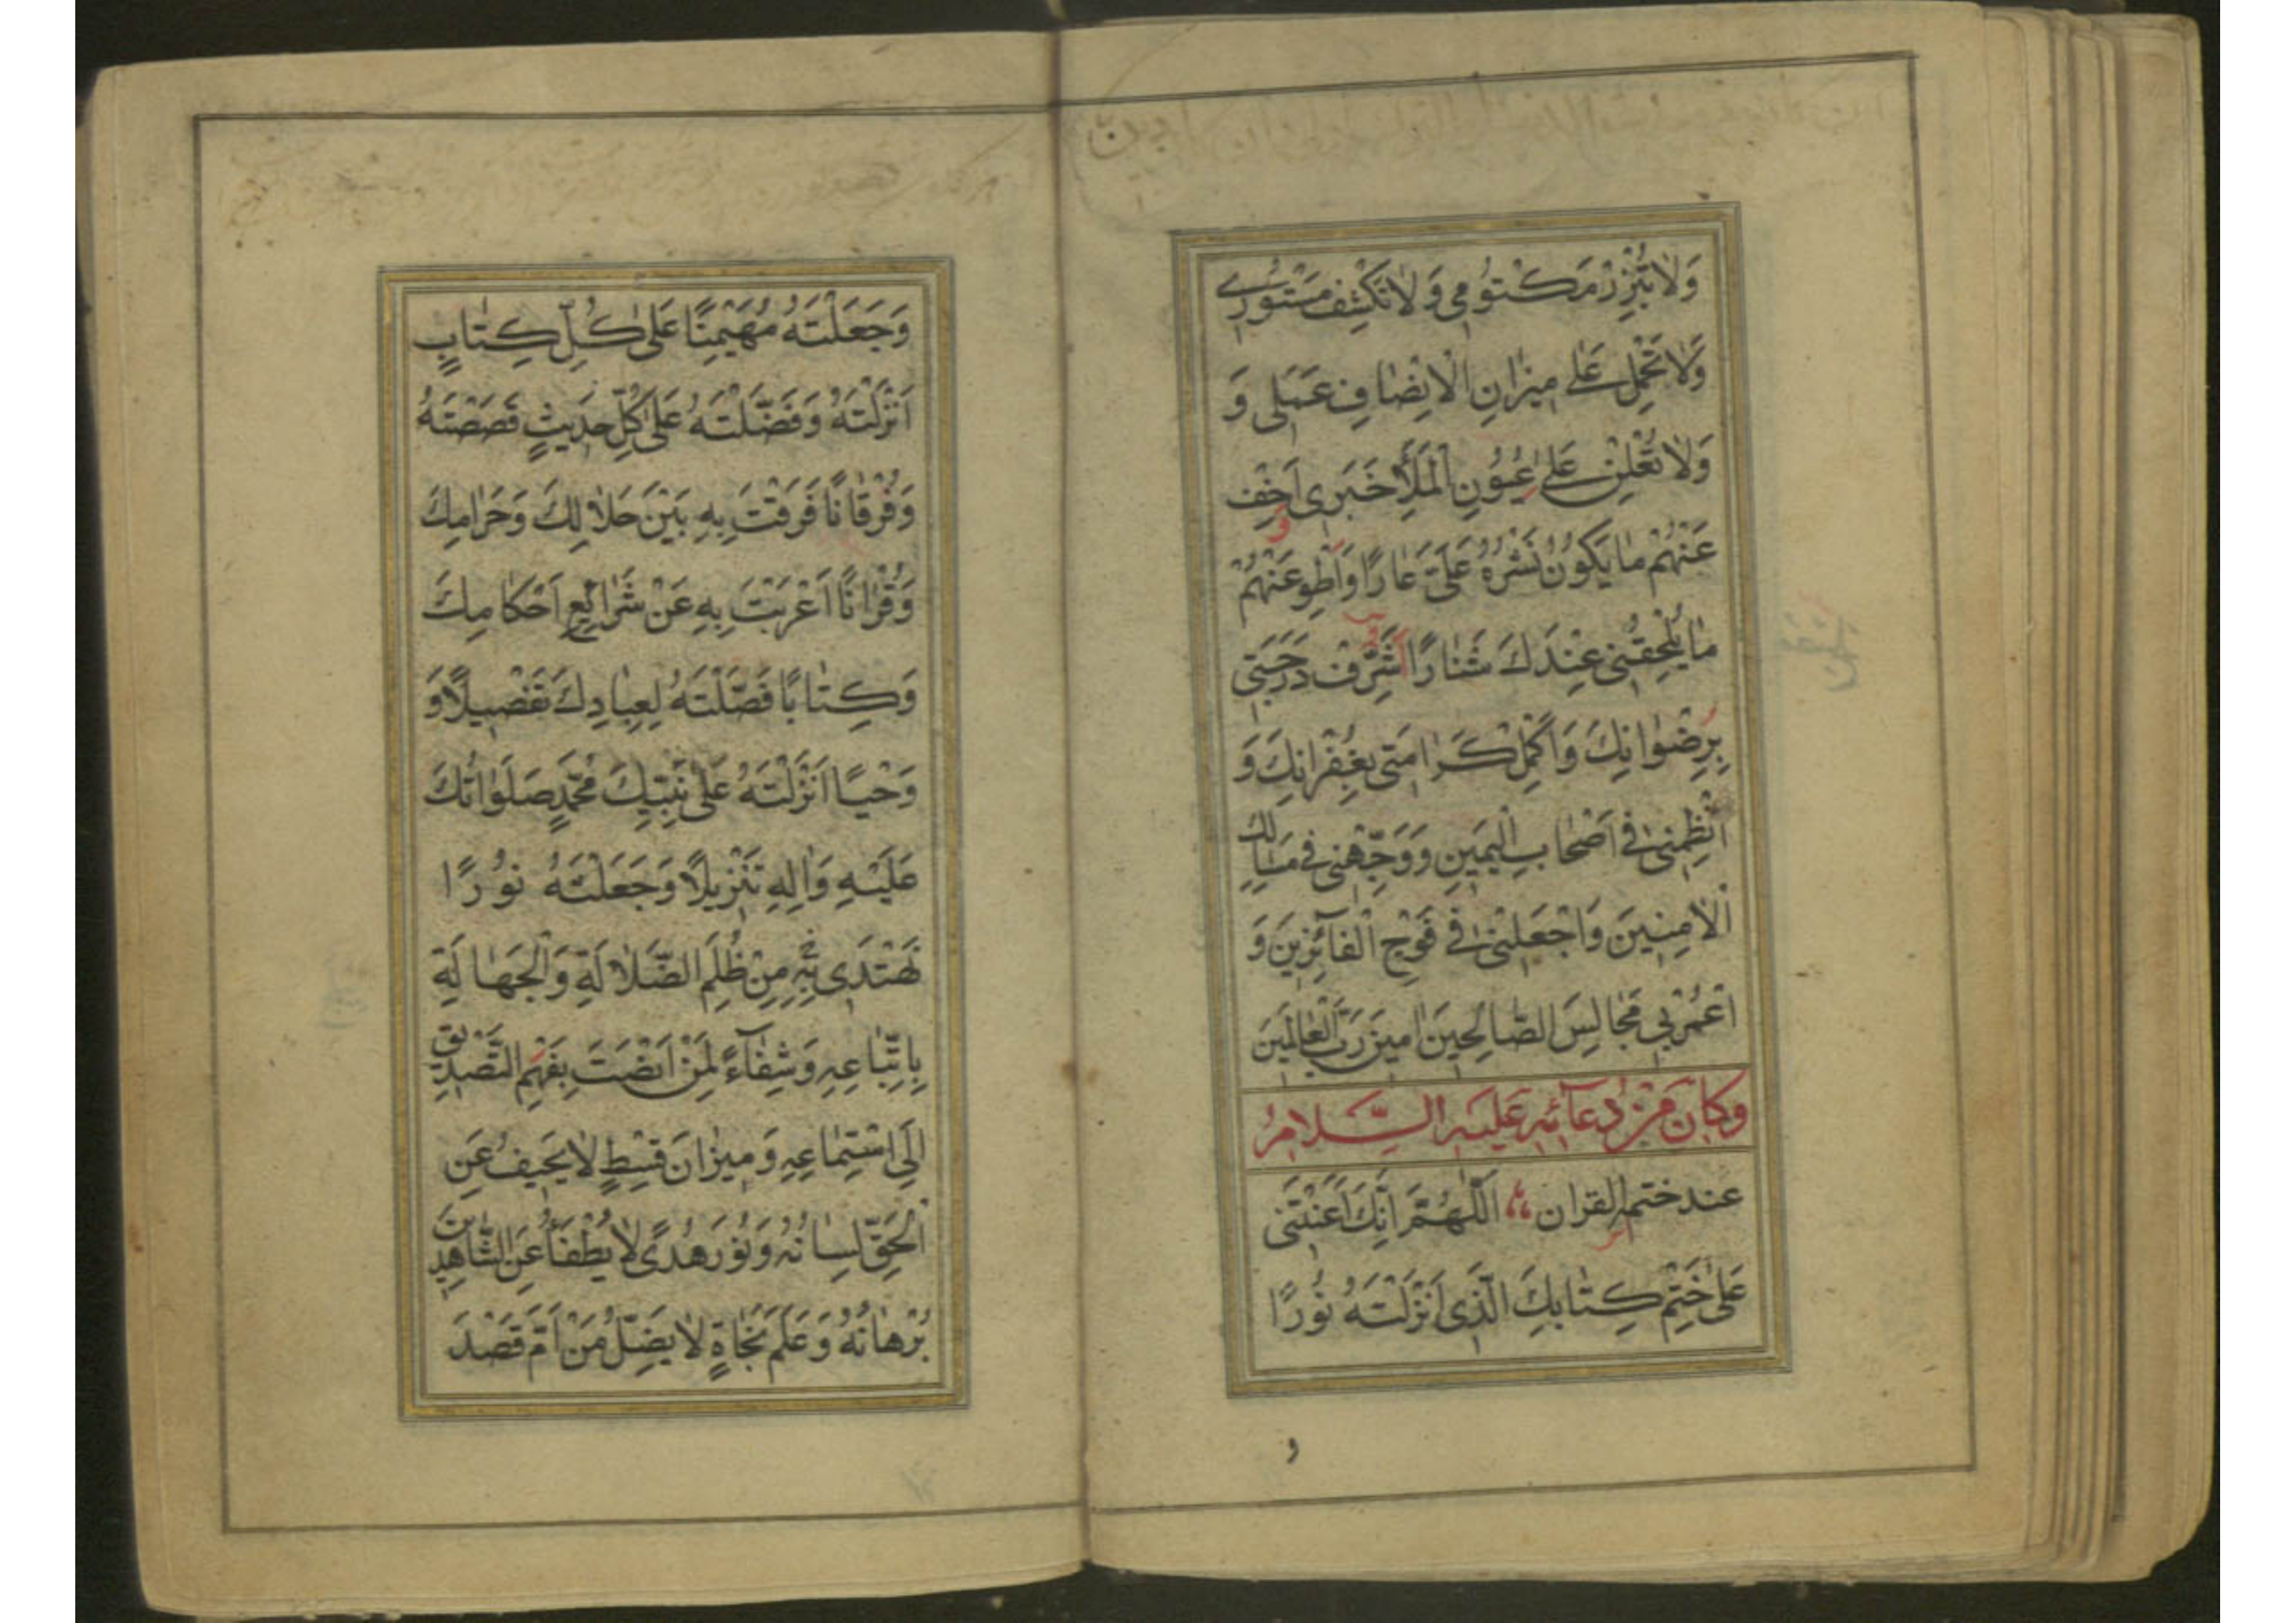 وَلاٰ تُبْرِزْ مَكْتُومِي وَلاٰ تَكْشِفْ مَسْتُورِي
وَلاٰ تَحْمِلْ عَلٰى مِيزٰانِ الْاِنْصٰافِ عَمَلِى وَ
وَلاٰ تُعْلِنْ عَلٰى عُيُونِ الْمَلَأِ خَبَرِى اَخْفِ
عَنْهُمْ مٰا يَكُونُ نَشْرُهُ عَلَىَّ عٰارًا وَاَطْوِ عَنْهُمْ
مٰا يُلْحِقُنِى عِنْدَكَ شَنٰارًا شَرِّفْ دَرَجَتِى
بِرِضْوٰانِكَ وَاَكْمِلْ كَرٰامَتِى بِغُفْرٰانِكَ وَ
انْظِمْنِى فِى اَصْحٰابِ الْيَمِينِ وَوَجِّهْنِى فِى مَسٰالِكِ
الْاٰمِنِينَ وَاجْعَلْنِى فِى فَوْجِ الْفٰآئِزِينَ وَ
اعْمُرْ بِى مَجٰالِسَ الصّٰالِحِينَ اٰمِينَ رَبَّ الْعٰالَمِينَ
وكانَ مِنْ دُعآئِهِ عَليَهِ السَّلامُ
عند ختم القران اَللّٰهُمَّ اِنَّكَ اَعَنْتَنِى
عَلٰى خَتْمِ كِتٰابِكَ الَّذِى اَنْزَلْتَهُ نُورًا
و
وَجَعَلْتَهُ مُهَيْمِنًا عَلٰى كُلِّ كِتٰابٍ
اَنْزَلْتَهُ وَفَضَّلْتَهُ عَلٰى كُلِّ حَدِيثٍ قَصَصْتَهُ
وَفُرْقٰانًا فَرَقْتَ بِهِ بَيْنَ حَلاٰلِكَ وَحَرٰامِكَ
وَقُرْاٰنًا اَعْرَبْتَ بِهِ عَنْ شَرٰائِعِ اَحْكٰامِكَ
وَكِتٰابًا فَصَّلْتَهُ لِعِبٰادِكَ تَفْصِيلًا وَ
وَحْيًا اَنْزَلْتَهُ عَلٰى نَبِيِّكَ مُحَمَّدٍ صَلَوٰاتُكَ
عَلَيْهِ وَاٰلِهِ تَنْزِيلًا وَجَعَلْتَهُ نُورًا
نَهْتَدِى بِهِ مِنْ ظُلَمِ الضَّلاٰلَةِ وَالْجَهٰالَةِ
بِاتِّبٰاعِهِ وَشِفٰآءً لِمَنْ اَنْصَتَ بِفَهْمِ التَّصْدِيقِ
اِلَى اسْتِمٰاعِهِ وَمِيزٰانَ قِسْطٍ لاٰ يَحِيفُ عَنِ
الْحَقِّ لِسٰانُهُ وَنُورَ هُدًى لاٰ يُطْفَأُ عَنِ الشّٰاهِدِينَ
بُرْهٰانُهُ وَعَلَمَ نَجٰاةٍ لاٰ يَضِلُّ مَنْ اَمَّ قَصْدَ